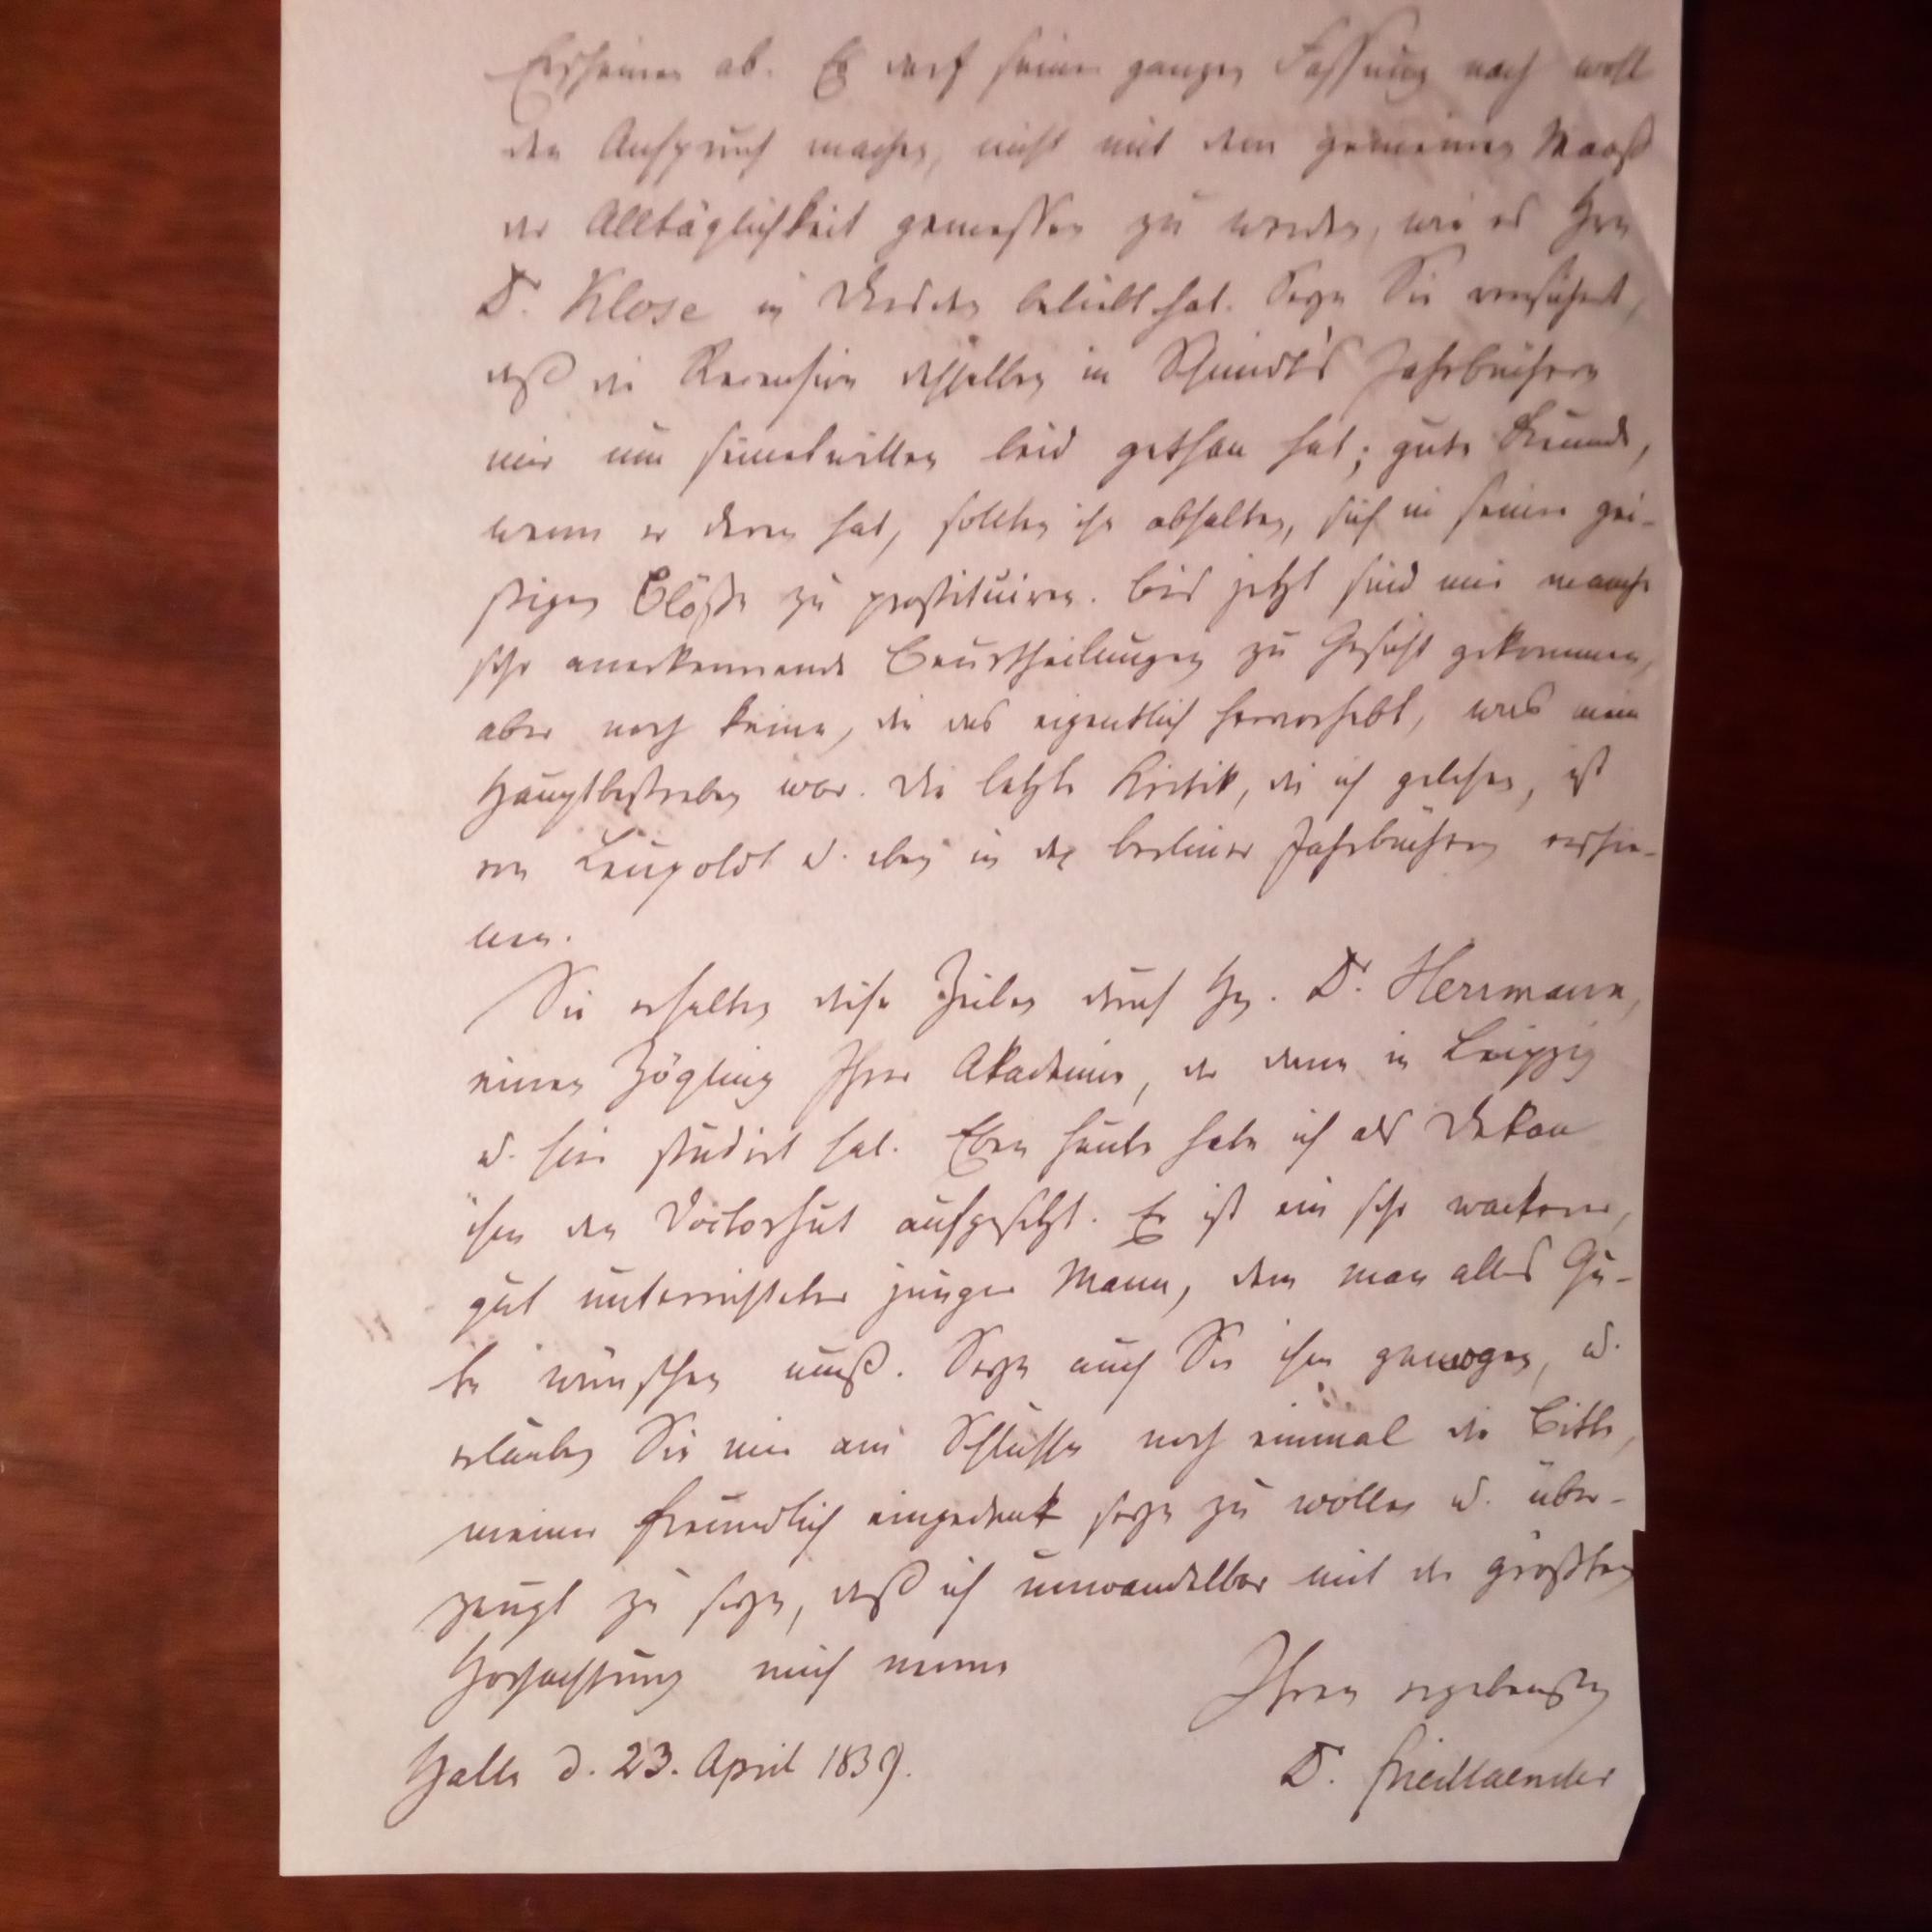 Erscheinen ab. Es darf seiner ganzen Fassung nach wohl
den Anspruch machen, nicht mit dem gemeinen Maaß
der Alltäglichkeit gemessen zu werden, wie es Hrn
D. Klose in Dresden beliebt hat. Seyn Sie versichert,
daß die Recension desselben in Schmidt's Jahrbüchern
mir um seinetwillen leid gethan hat; gute Freunde,
wenn er deren hat, sollten ihn abhalten, sich in seiner gei-
stigen Blöße zu prostituiren. Bis jetzt sind mir manche
sehr anerkennende Beurtheilungen zu Gesicht gekommen,
aber noch keine, die das eigentlich hervorhebt, was mein
Hauptbestreben war. Die letzte Kritik, die ich gelesen, ist
von Leupoldt u. eben in den berliner Jahrbüchern erschie-
nen.
Sie erhalten diese Zeilen durch Hn. D. Herrmann,
einen Zögling Ihrer Akademie, der dann in Leipzig
u. hier studirt hat. Eben heute habe ich als Dekan
ihm den Doctorhut aufgesetzt. Er ist ein sehr wackerer,
gut unterrichteter junger Mann, dem man alles Gu-
te wünschen muß. Seyn auch Sie ihm gewogen, u.
erlauben Sie mir am Schlusse noch einmal die Bitte,
meiner freundlich eingedenk seyn zu wollen u. über-
zeugt zu seyn, daß ich unwandelbar mit der größten
Hochachtung mich nenne
Ihren ergebensten
Halle d. 23. April 1839.
D. Friedlaender